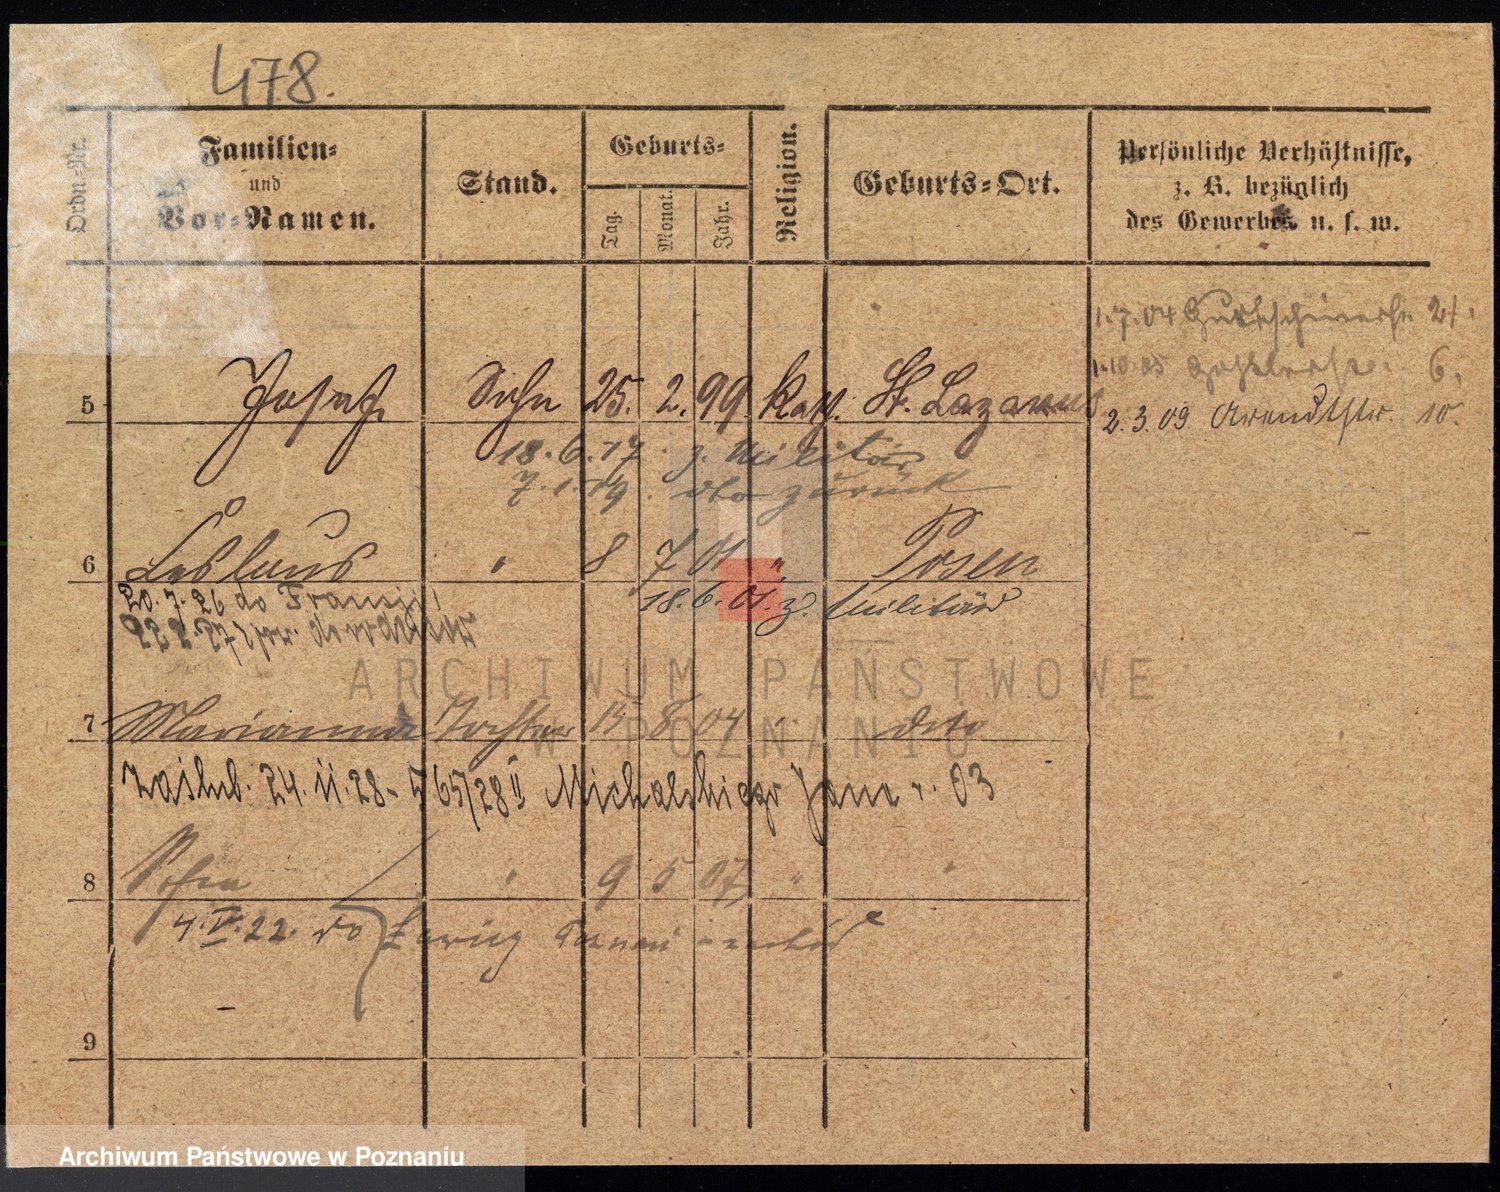 478.
Ordn-Nr.
Familien-
und
Vor-Namen.
Stand.
Geburts-
Tag.
Monat.
Jahr.
Religion.
Geburts-Ort.
Persönliche Verhältnisse,
z. B. bezüglich
des Gewerbes u. s. w.
1.7.04 21.
1.10.05 6.
2.3.09 Arendtstr. 10.
5 Josef. Sohn 25. 2. 99 kath. St. Lazarus
18.6.17 z. Militär
7.1.19. dto zurück
6 Leslaus " 8 7 01 " Posen
20.7.26 do Francji
18.6. z. Militär
7 Marianna Tochter 15 8 04 " dito
zaślub. 24.11.28 - 565/28 II Michalskiego Jana r. 03
8 Sofia " 9 5 07 " "
4.V.22. do
9
ARCHIWUM PAŃSTWOWE
W POZNANIU
Archiwum Państwowe w Poznaniu